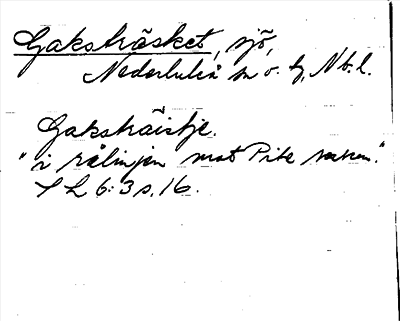 Gaksträsket, sjö,
Nederluleå sn o. tg, Nb. l.
Gaksträistje.
"i rålinjen mot Pite socken."
SL 6:3 s. 16.